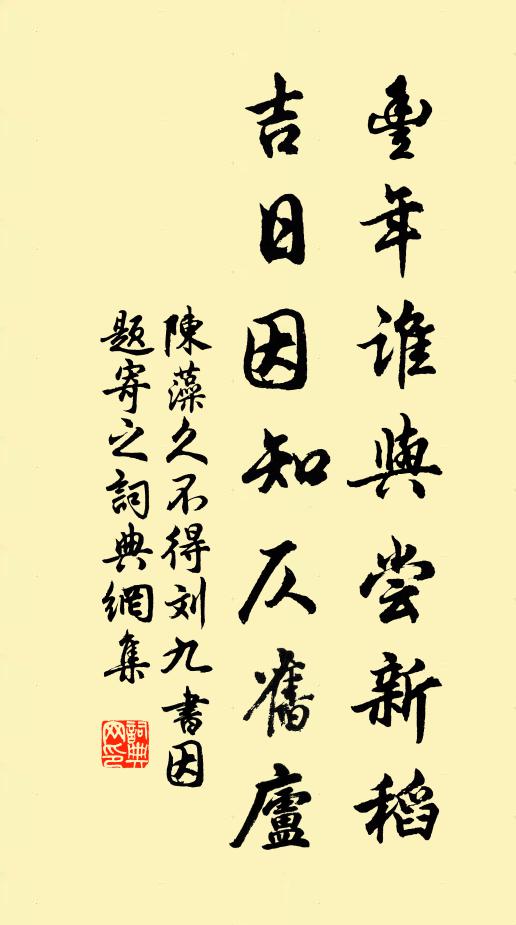 豐年誰與尝新稻
吉日因知仄舊廬
陳藻久不得刘九書因
題寄之詞典網集
詞典網印